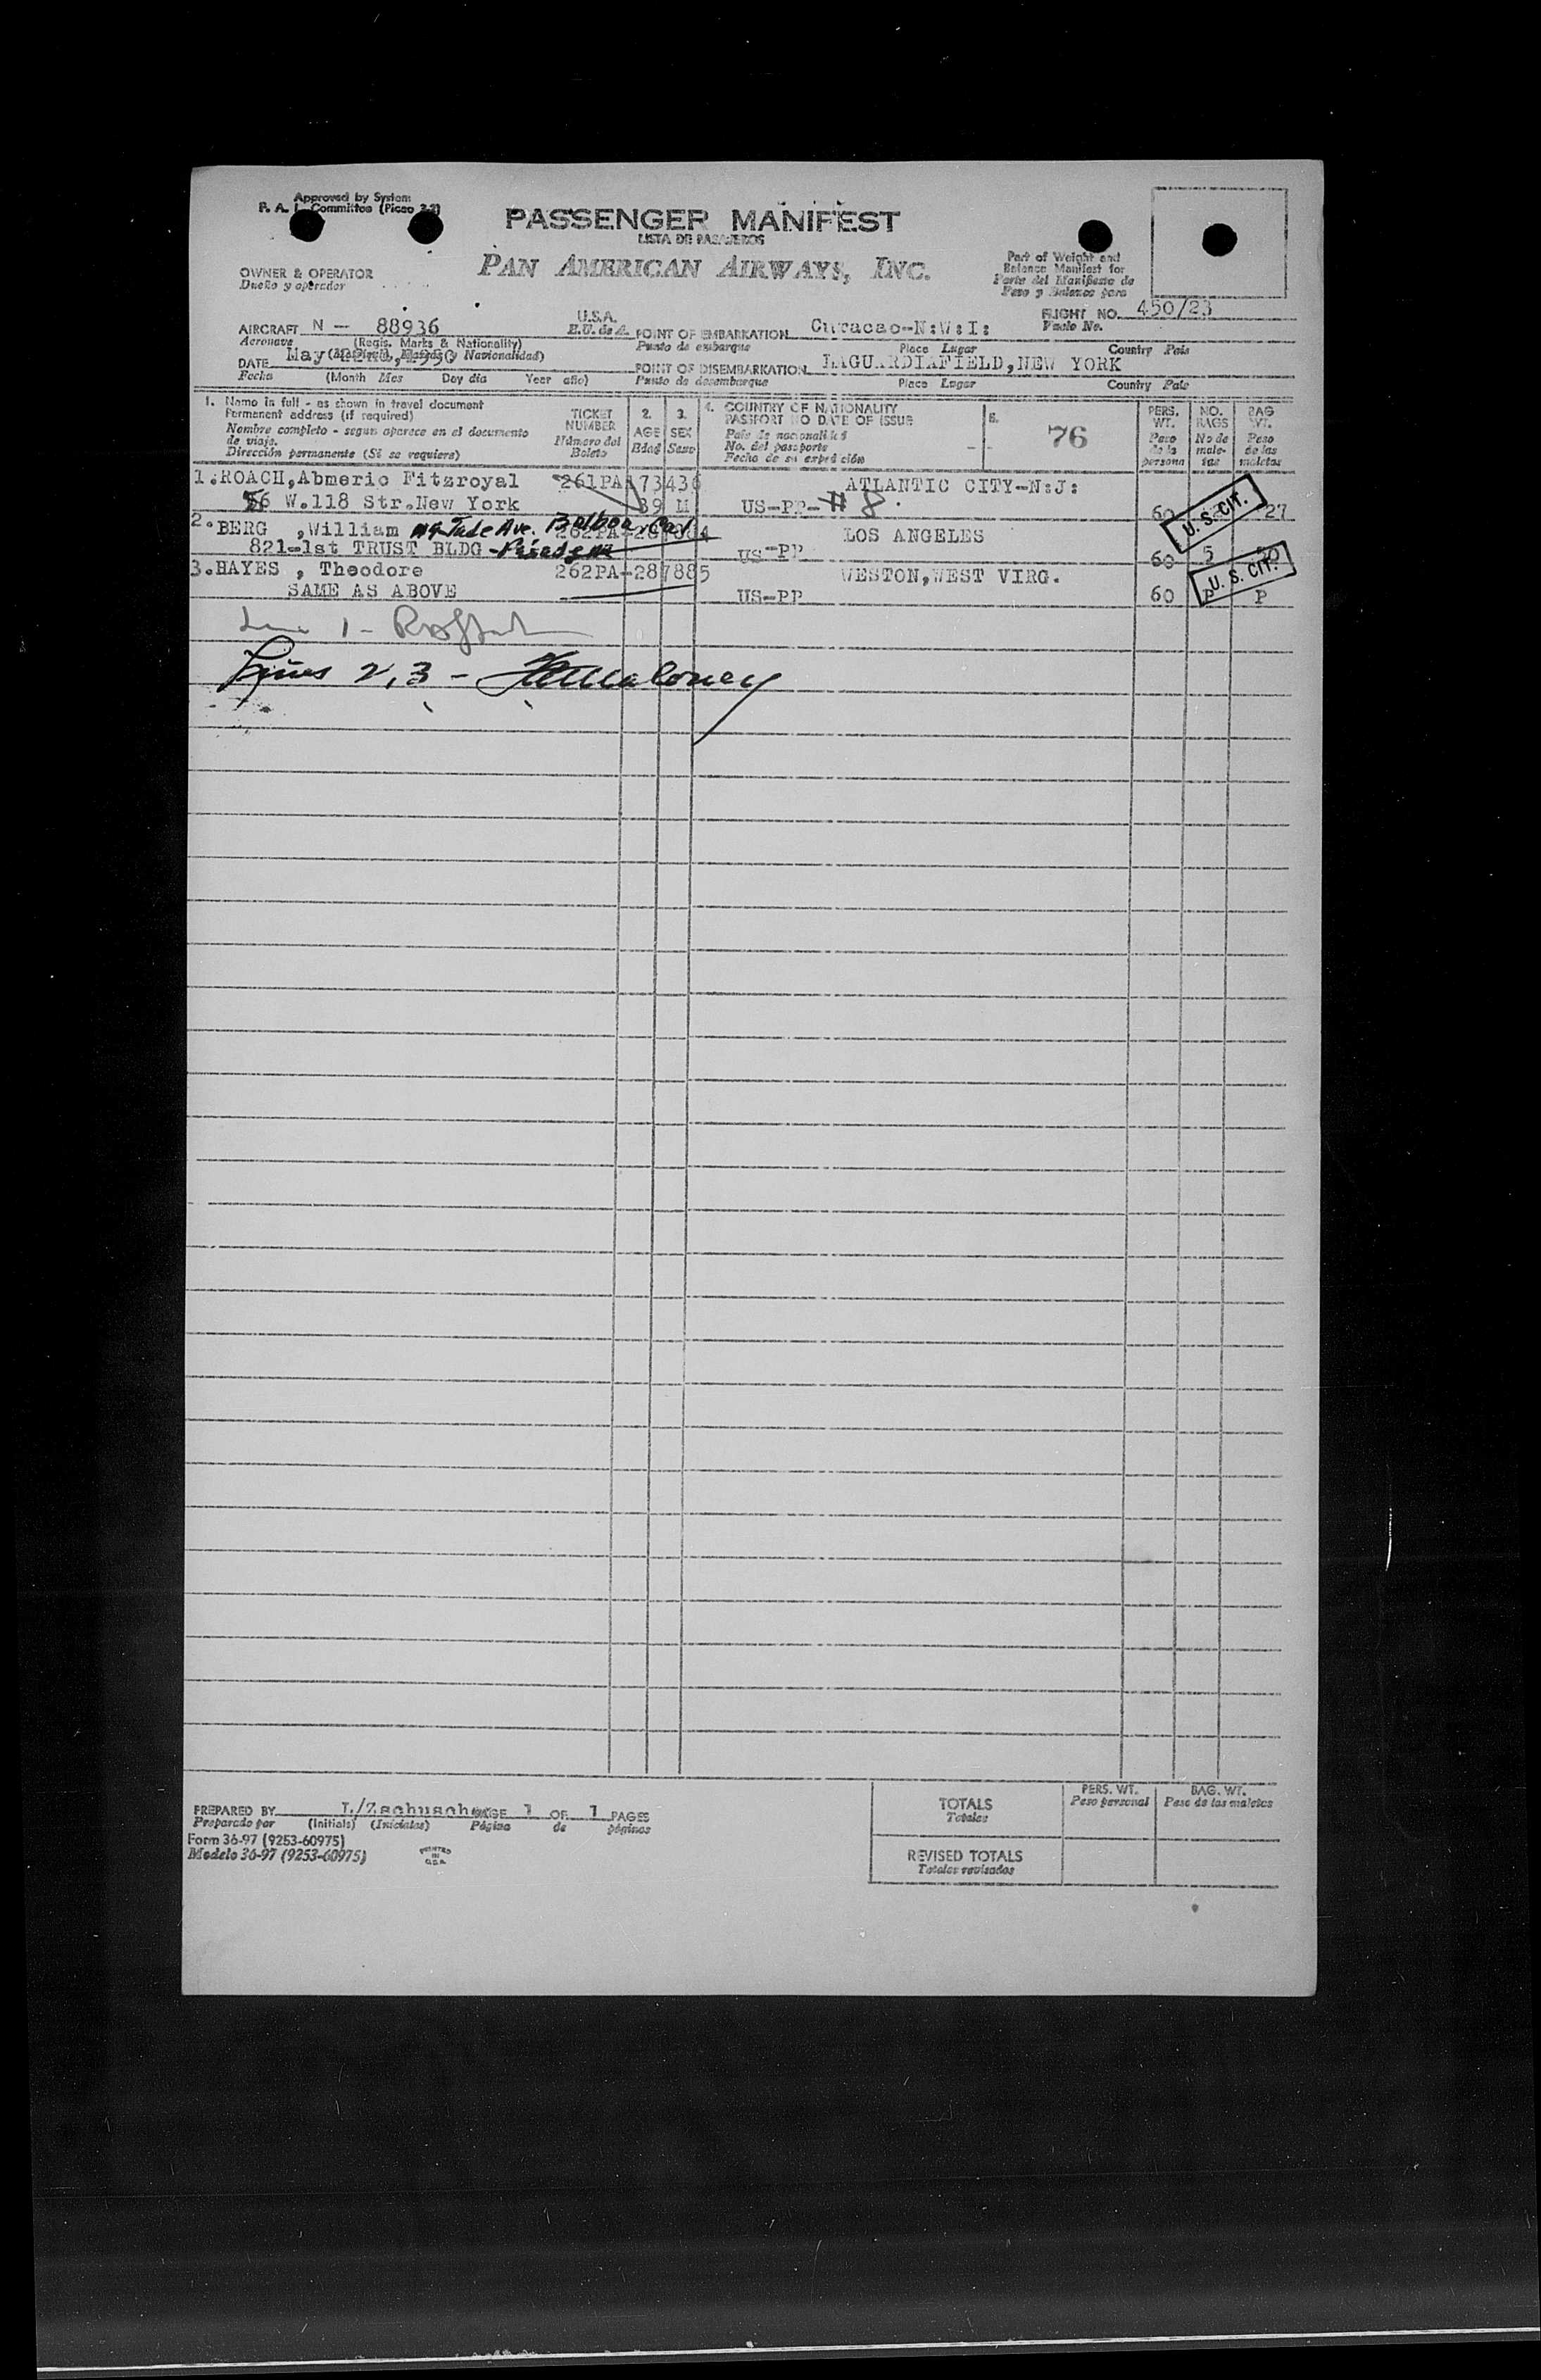 Approved by System
P. A. I. Committee (Picao 2-2)
PASSENGER MANIFEST
LISTA DE PASAJEROS
PAN AMERICAN AIRWAYS, INC.
Part of Weight and
Balance Manifest for
Parte del Manifiesto de
Peso y Balance para
OWNER & OPERATOR
Dueño y operador
FLIGHT NO. 450/23
Vuelo No.
AIRCRAFT N - 88936 U.S.A.
Aeronave (Regis. Marks & Nationality) E.U. de A.
POINT OF EMBARKATION Curacao-N:W:I:
Punto de embarque Place Lugar Country Pais
DATE May
Fecha (Month Mes Day dia Year año)
POINT OF DISEMBARKATION LAGUARDIAFIELD,NEW YORK
Punto de desembarque Place Lugar Country Pais
1. Name in full - as shown in travel document
Permanent address (if required)
Nombre completo - segun aparece en el documento
de viaje.
Dirección permanente (Si se requiere)
TICKET
NUMBER
Número del
Boleto
2.
AGE
Edad
3.
SEX
Sexo
4. COUNTRY OF NATIONALITY
PASSPORT NO DATE OF ISSUE
Pais de nacionalidad
No. del pasaporte
Fecha de su expedición
5.
76
PERS.
WT.
Peso
de la
persona
NO.
BAGS
No de
male-
tas
BAG
WT.
Peso
de las
maletas
1.ROACH,Abmeric Fitzroyal 261PA173436 ATLANTIC CITY-N:J:
W.118 Str.New York 39 M US-PP-#8. 60 27
U. S. CIT.
2.BERG ,William Ave. Balboa, Cal. LOS ANGELES
821-1st TRUST BLDG -Pasadena US-PP 60 5
3.HAYES , Theodore 262PA-287885 WESTON,WEST VIRG.
SAME AS ABOVE US-PP 60 P P
U. S. CIT.
Line 1 -
Lines 2,3 - Maloney
PREPARED BY PAGE 1 OF 1 PAGES
Preparado por (Initials) (Iniciales) Página de páginas
Form 36-97 (9253-60975)
Modelo 36-97 (9253-60975)
PRINTED
IN
U.S.A.
PERS. WT.
Peso personal
BAG. WT.
Peso de las maletas
TOTALS
Totales
REVISED TOTALS
Totales revisados